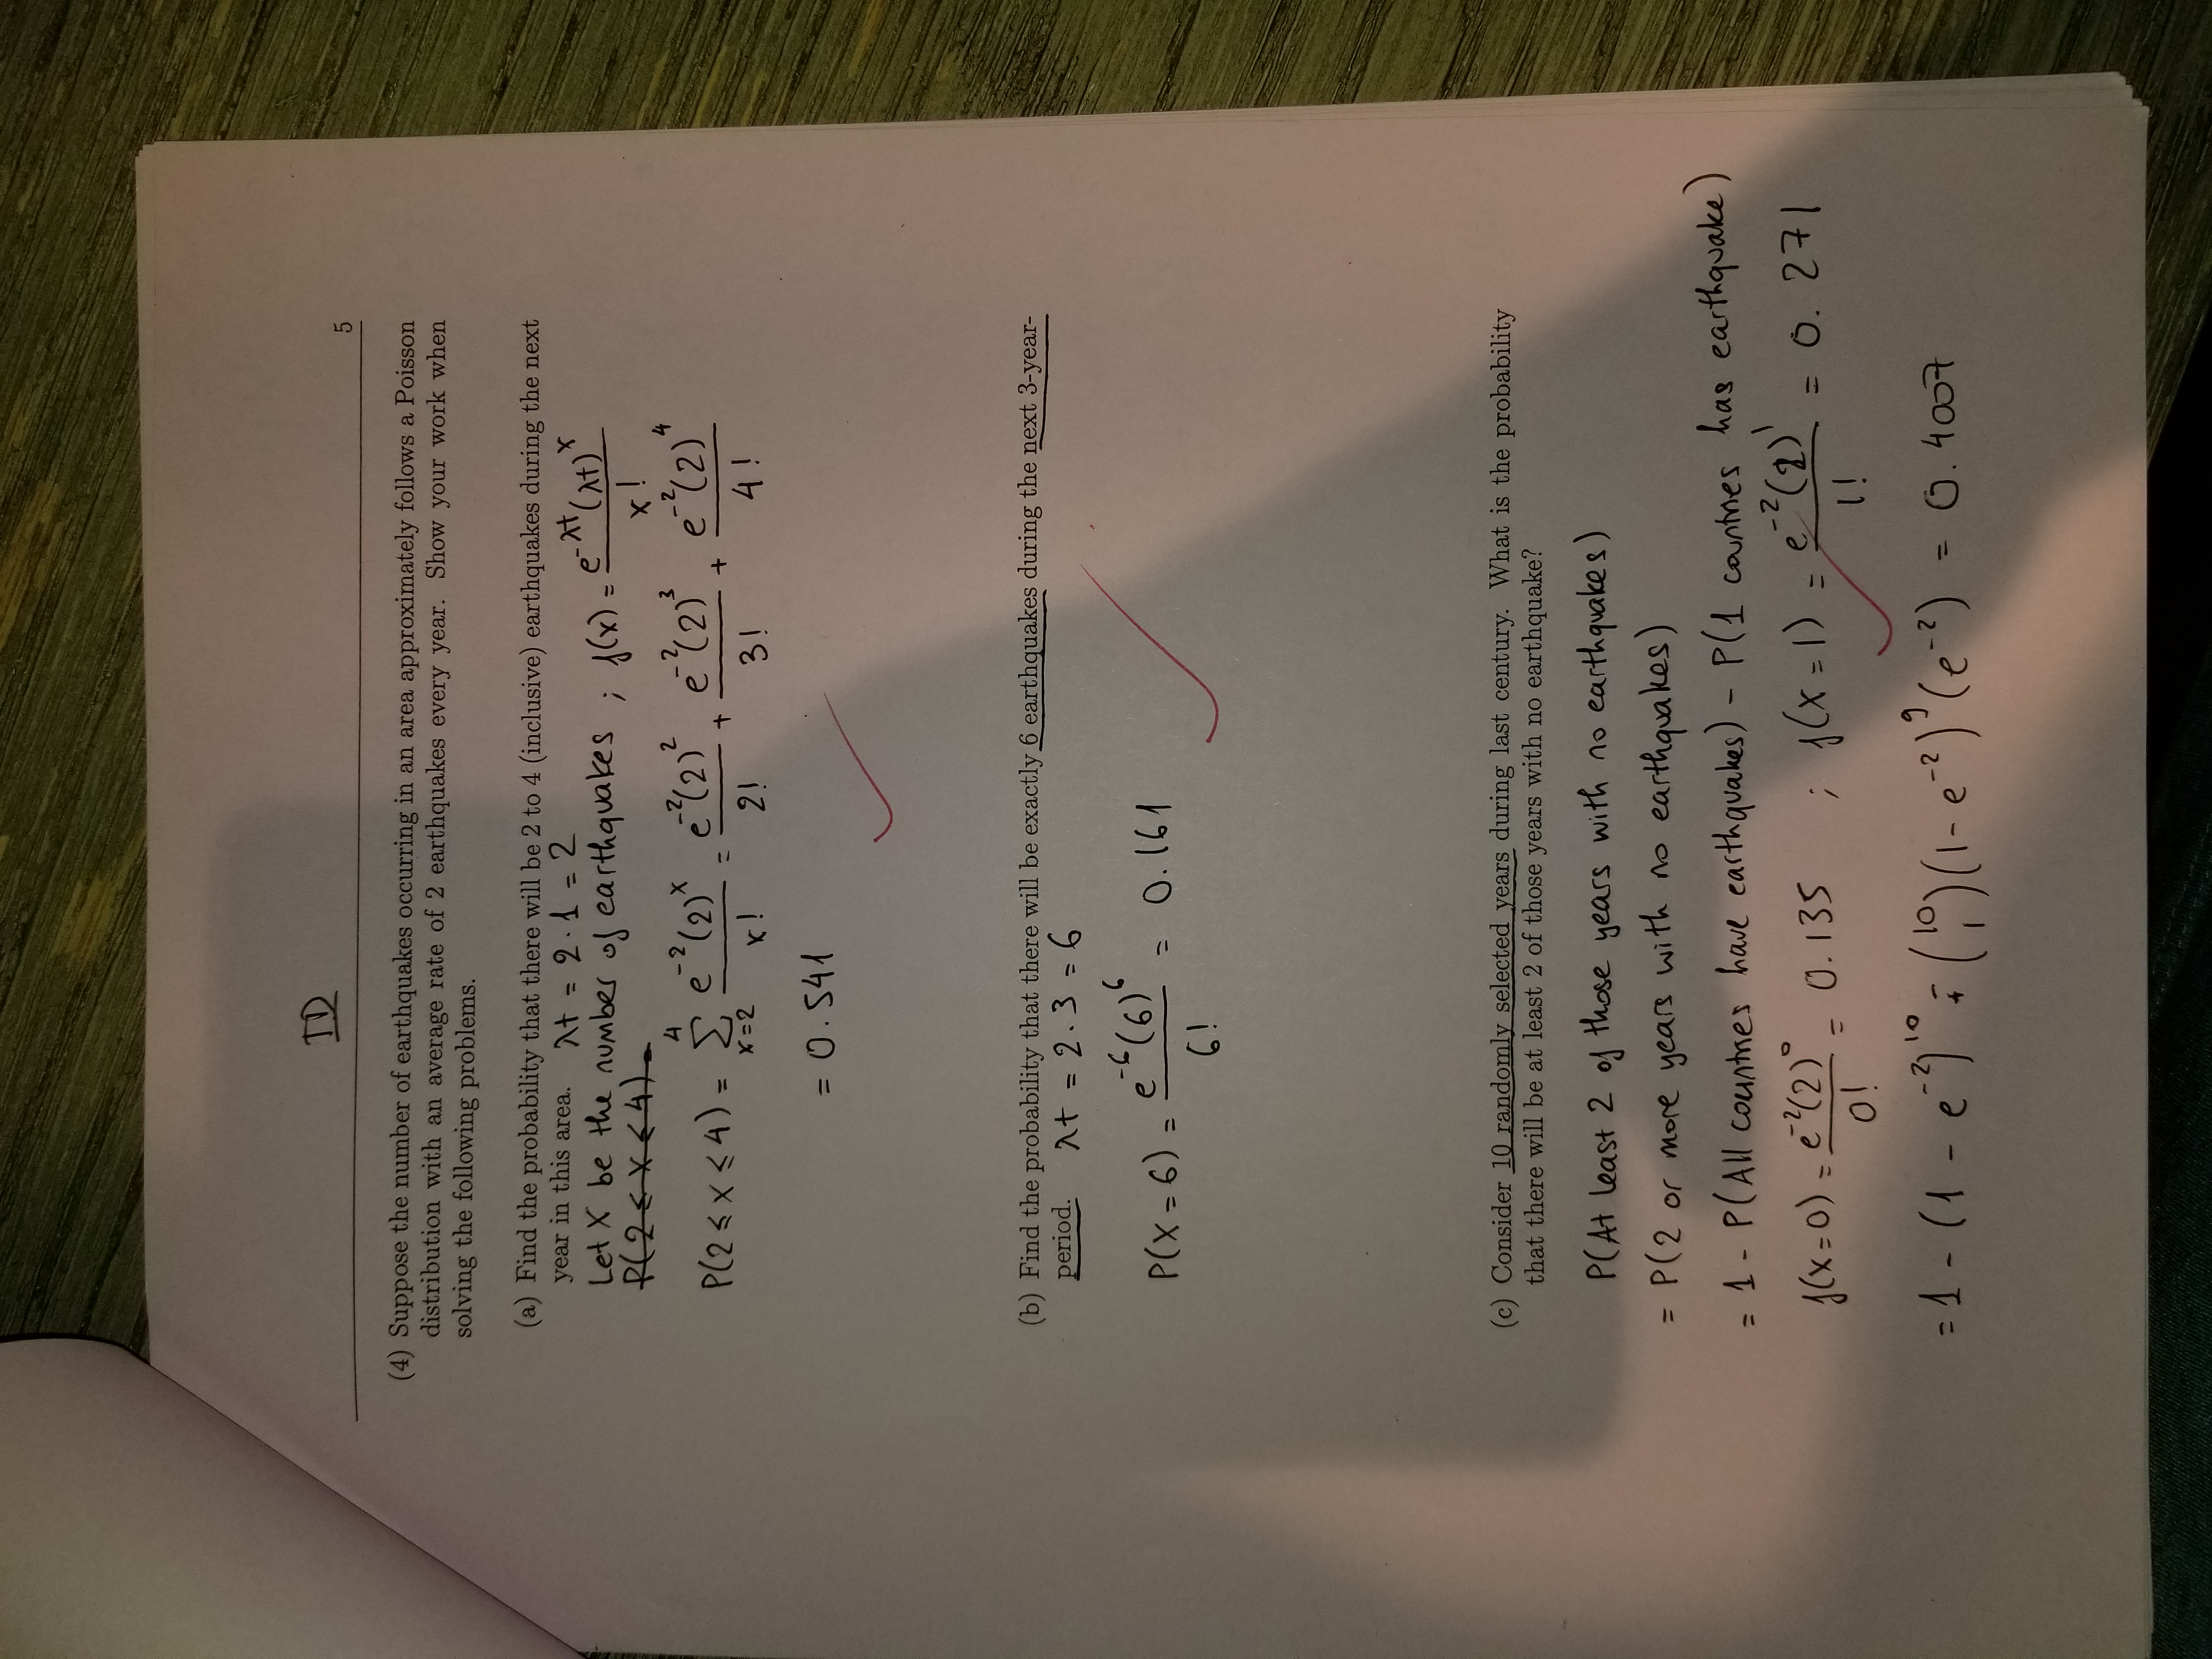 5
(4) Suppose the number of earthquakes occurring in an area approximately follows a Poisson
distribution with an average rate of 2 earthquakes every year. Show your work when
solving the following problems.
(a) Find the probability that there will be 2 to 4 (inclusive) earthquakes during the next
year in this area. λt = 2 · 1 = 2
Let X be the number of earthquakes ; f(x) = e^-λt (λt)^x / x!
P(2 ≤ X ≤ 4) =
P(2 ≤ X ≤ 4) = ∑_{x=2}^{4} e^-2 (2)^x / x! = e^-2 (2)^2 / 2! + e^-2 (2)^3 / 3! + e^-2 (2)^4 / 4!
= 0.541
(b) Find the probability that there will be exactly 6 earthquakes during the next 3-year-
period. λt = 2 · 3 = 6
P(X = 6) = e^-6 (6)^6 / 6! = 0.161
(c) Consider 10 randomly selected years during last century. What is the probability
that there will be at least 2 of those years with no earthquake?
P(At least 2 of those years with no earthquakes)
= P(2 or more years with no earthquakes)
= 1 - P(All countries have earthquakes) - P(1 countries has earthquake)
f(x = 0) = e^-2 (2)^0 / 0! = 0.135 ; f(x = 1) = e^-2 (2)^1 / 1! = 0.271
= 1 - (1 - e^-2)^10 - (10 1)(1 - e^-2)^9 (e^-2) = 0.4007